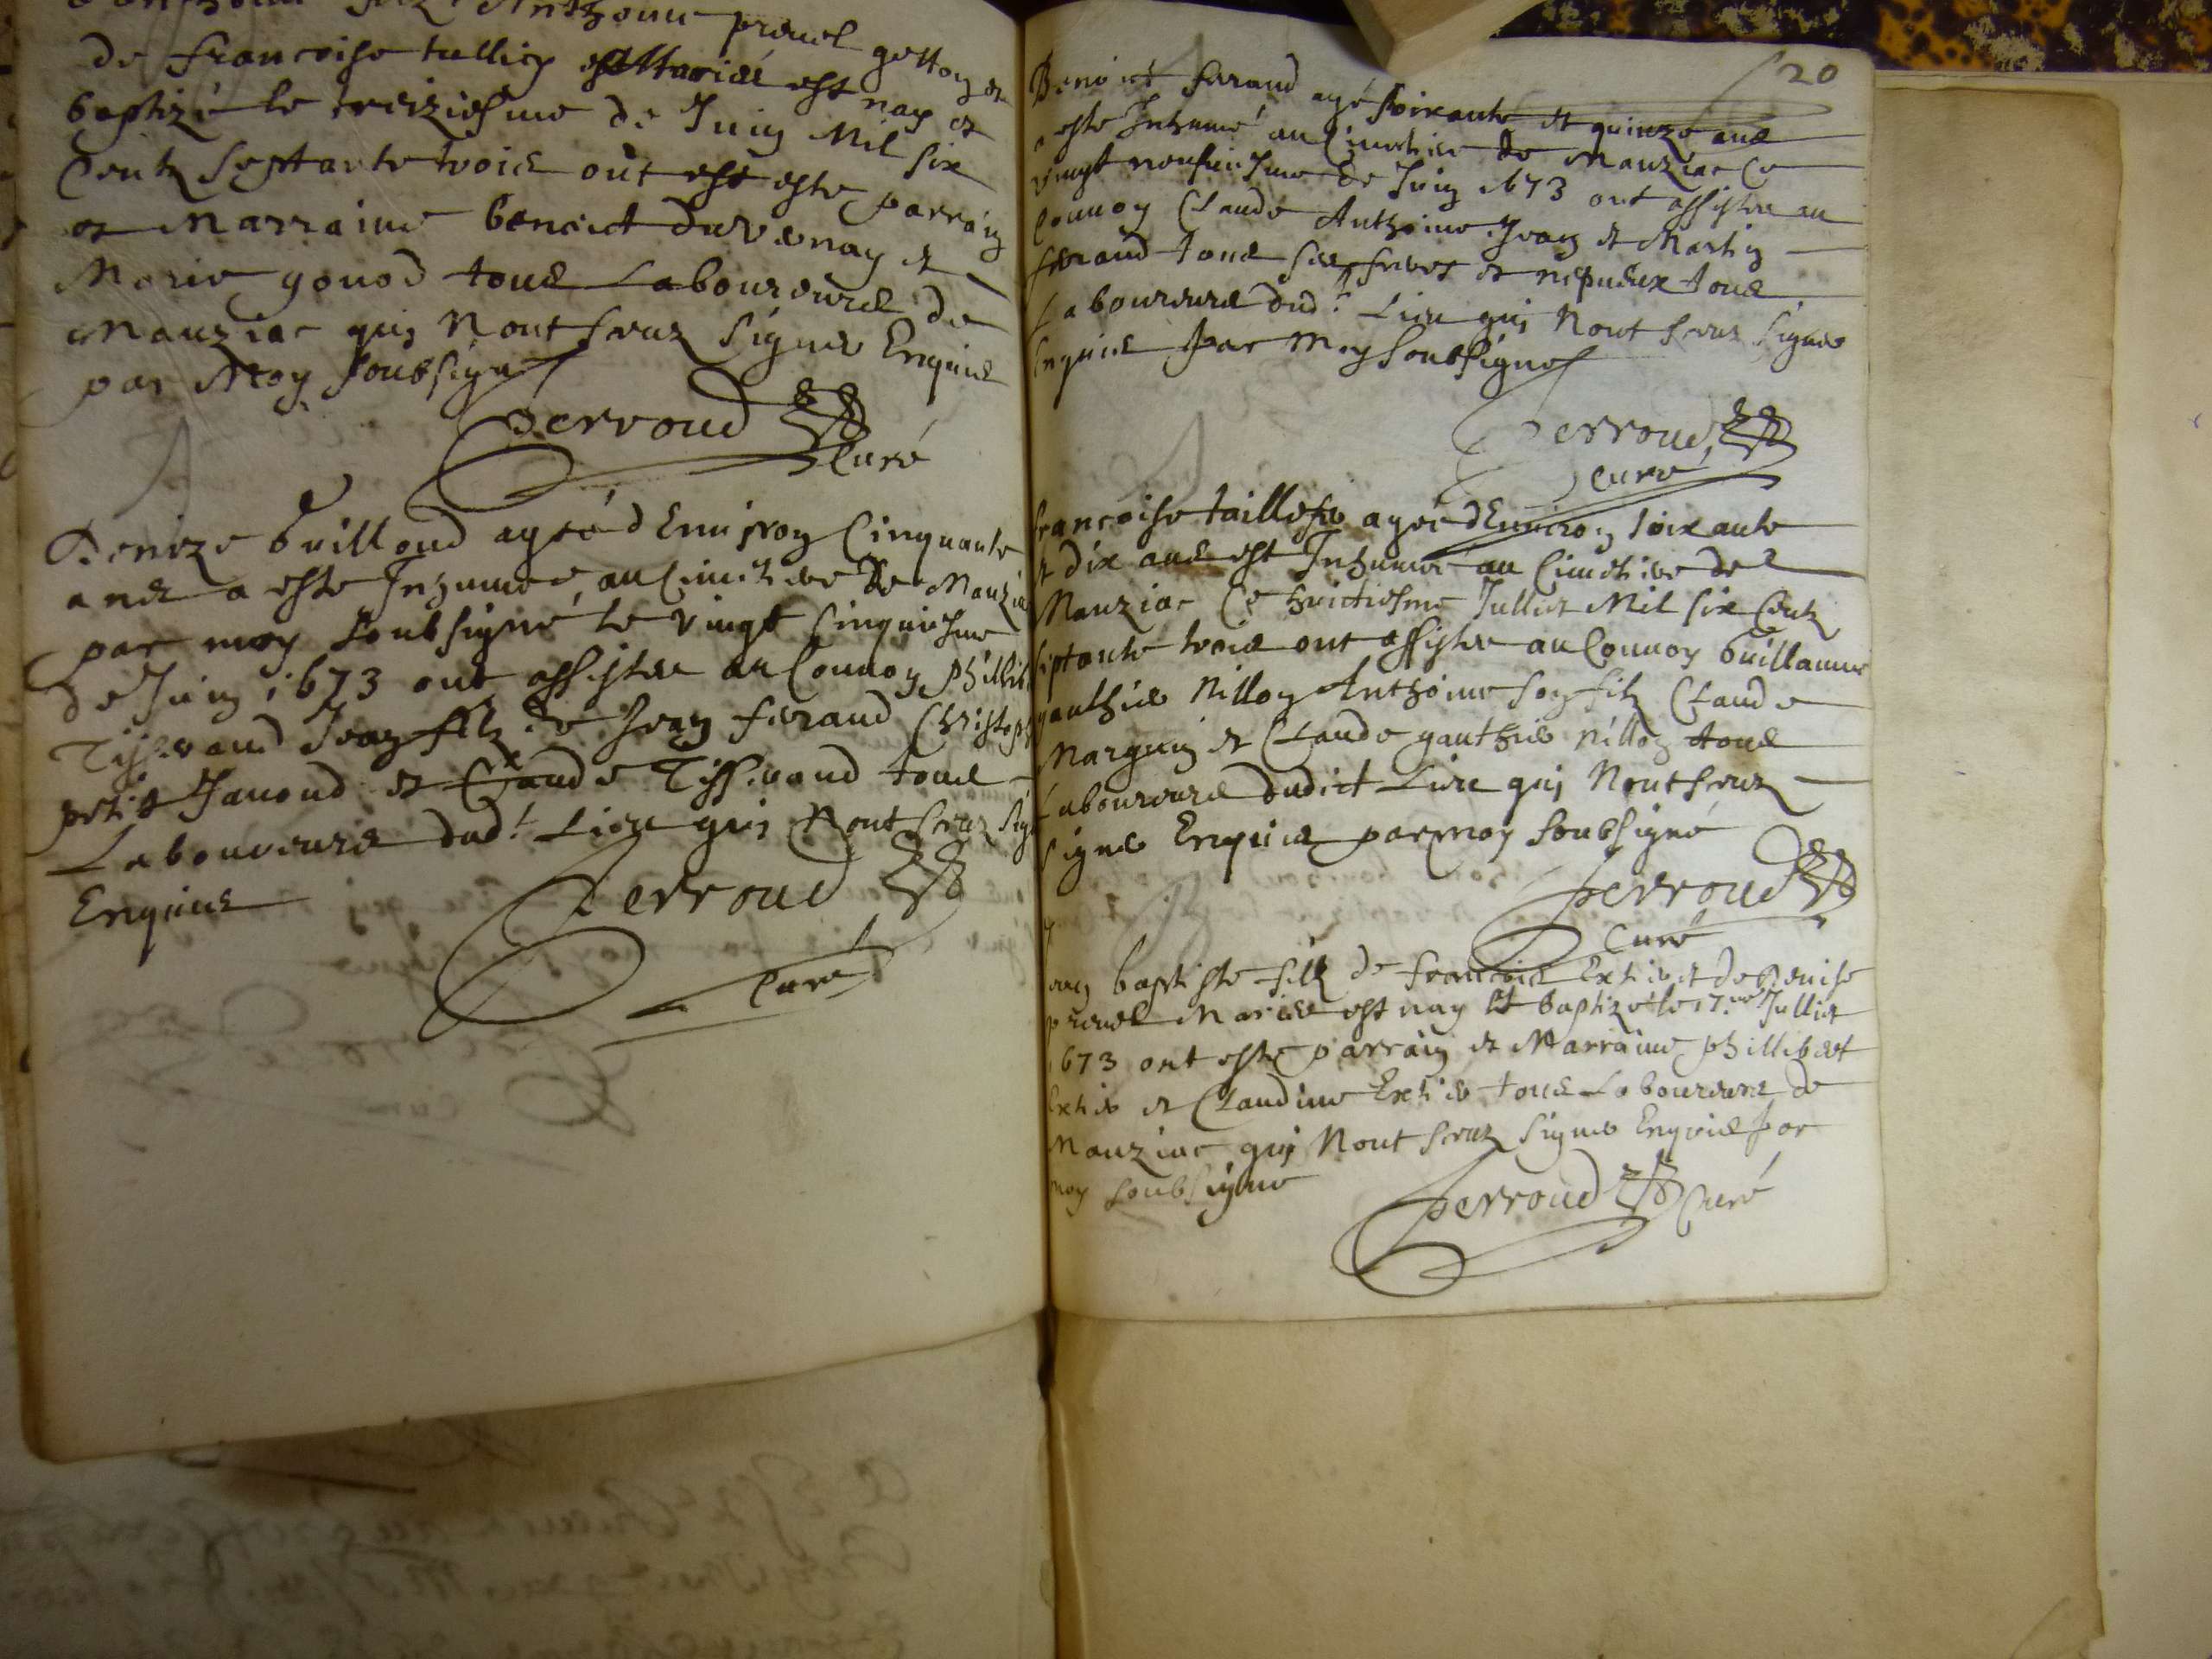 filz Anthoine preuel getton et
de francoise tullion est nay et
baptizé le treiziesme de Juin Mil six
Centz septante trois ont este parrain
et Marraine benoict duvernay et
Marie gonod tous Laboureurs de
Manziac quj Nont sceuz signer Enquis
par Moy soubsigné
Perroud
Curé
Denize Guilloud agée d Environ Cinquante
ans a este Inhumée au Cimetiere De Manziac
par moy soubsigné le vingt cinquiesme
de Juin 1673 ont assister au Conuoy phillib
Tisserand Jean filz de Jean feraud Christoph
petit Janond et Claude Tisserand tous
Laboureurs dud.t Lieu quj Nont sceuz sig
Enquis
Perroud
Curé
20
Benoict feraud agé soixante et quinze ans
a este Inhumé au Cimetiere de Manziac Ce
vingt neufuiesme de Juin 1673 ont assister au
Conuoy Claude Anthoine Jean et Martin
feraud tous ses freres et nepueux tous
Laboureurs dud.t Lieu quj Nont sceuz signer
Enquis par Moy soubsigné
Perroud
Curé
francoise taillefer agée d Environ soixante
et dix ans est Inhumée au Cimetiere de
Manziac Ce huictiesme Jullet Mil six Centz
septante trois ont assister au Conuoy Guillaume
gauthier Nillon Anthoine son filz Claude
Marguin et Claude gauthier nillon tous
Laboureurs dudict Lieu quj Nont sceuz
signer Enquis par moy soubsigné
Perroud
Curé
Jean baptiste filz de francois Extier et de Denise
preuel Mariés est nay et baptizé le 17.me Jullet
1673 ont este parrain et Marraine phillibert
Extier et Claudine Extier tous Laboureurs de
Manziac quj Nont sceuz signer Enquis par
moy soubsigne
Perroud Curé